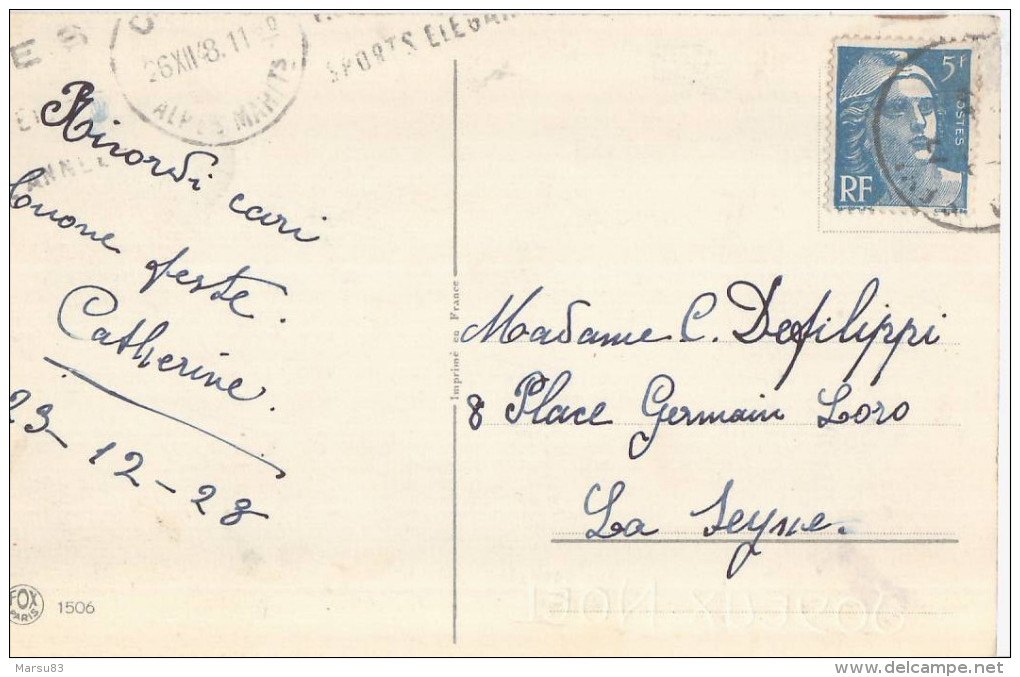 26XII48.11
ALPES MARIT
SPORTS ELEGAN
ANNE
Ricordi cari
buone feste.
Catherine.
23-12-28
5F
POSTES
RF
Imprimé en France
Madame C. Defilippi
8 Place Germain Loro
La Seyne.
JOYEUX NOËL
FOX
PARIS
1506
Marsu83
www.delcampe.net